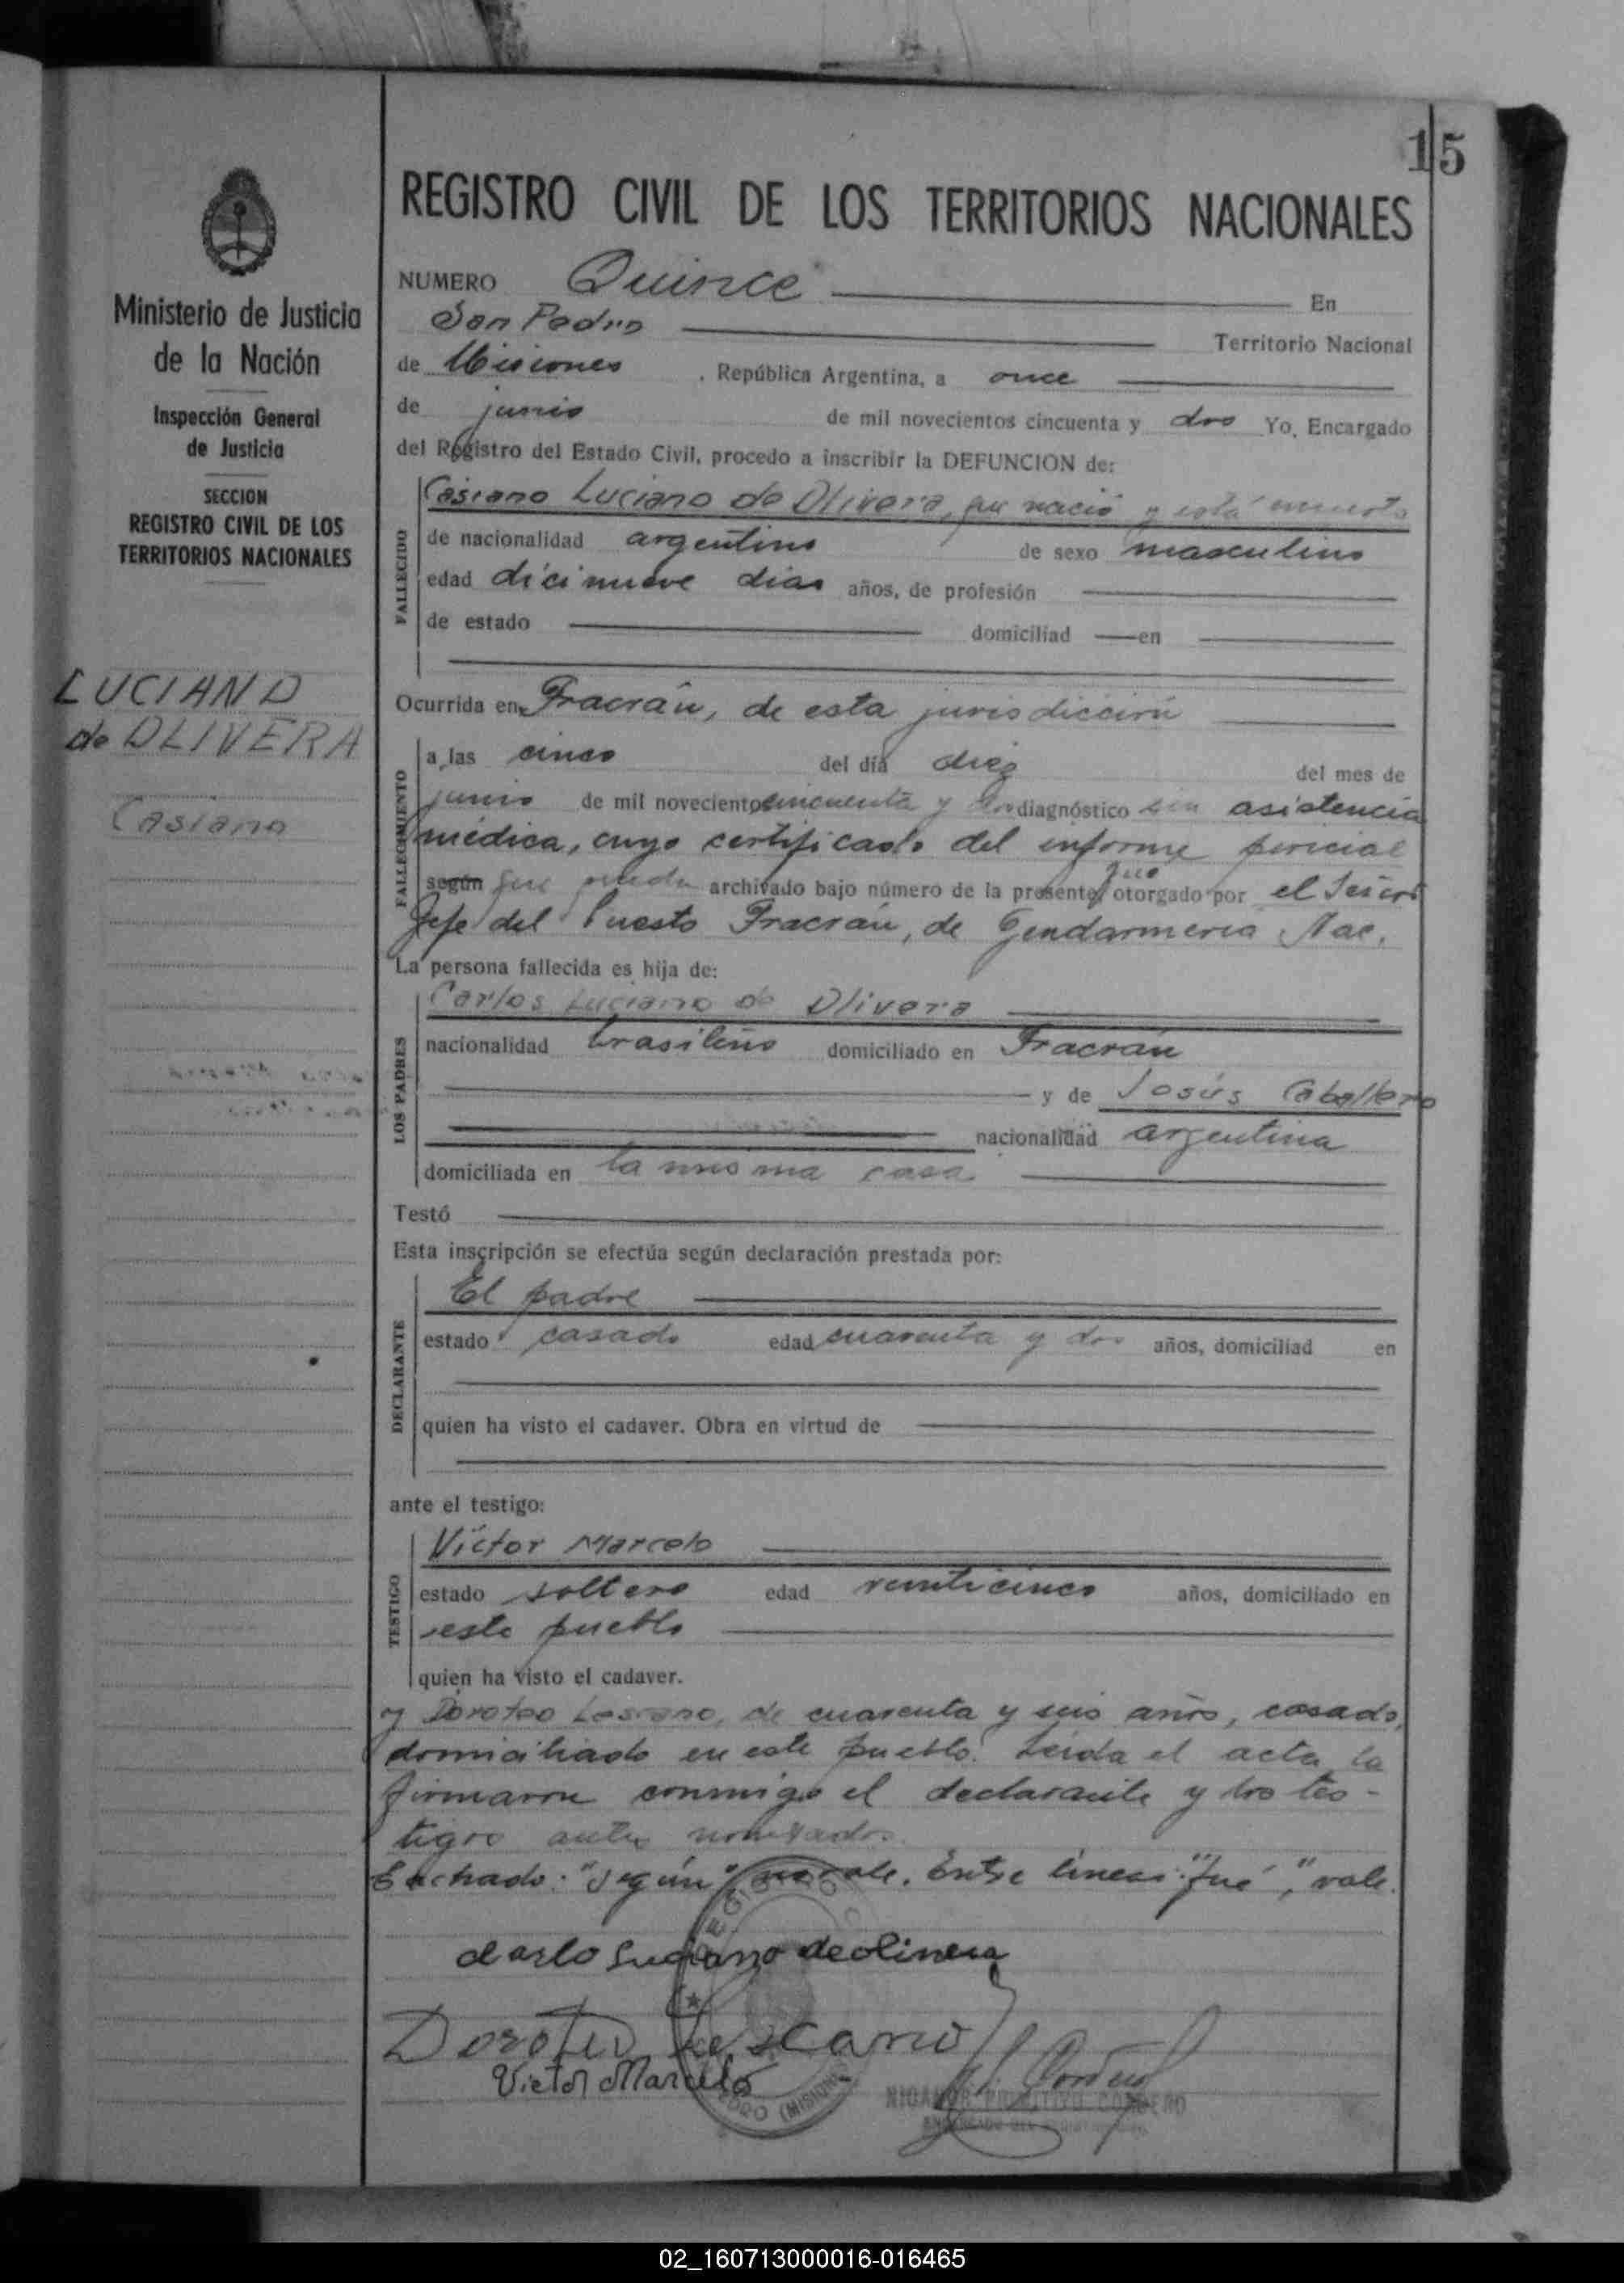 15
REGISTRO CIVIL DE LOS TERRITORIOS NACIONALES
Ministerio de Justicia
de la Nación
Inspección General
de Justicia
SECCION
REGISTRO CIVIL DE LOS
TERRITORIOS NACIONALES
LUCIANO
de OLIVERA
Casiano
NUMERO Quince En
San Pedro Territorio Nacional
de Misiones, República Argentina, a once
de junio de mil novecientos cincuenta y dos Yo, Encargado
del Registro del Estado Civil, procedo a inscribir la DEFUNCION de:
FALLECIDO
Casiano Luciano de Olivera, que nació y está
de nacionalidad argentino de sexo masculino
edad dicinueve dias años, de profesión
de estado domiciliad en
Ocurrida en Fracrán, de esta jurisdicción
FALLECIMIENTO
a las cinco del día diez del mes de
junio de mil novecientos cincuenta y dos diagnóstico sin asistencia
médica, cuyo certificado del informe pericial
según que queda archivado bajo número de la presente, fué otorgado por el Señor
Jefe del Puesto Fracrán, de Gendarmeria Nac.
La persona fallecida es hija de:
LOS PADRES
Carlos Luciano de Olivera
nacionalidad brasileño domiciliado en Fracrán
y de Josús Caballero
nacionalidad argentina
domiciliada en la misma casa
Testó
Esta inscripción se efectúa según declaración prestada por:
DECLARANTE
El padre
estado casado edad cuarenta y dos años, domiciliad en
quien ha visto el cadaver. Obra en virtud de
ante el testigo:
TESTIGO
Víctor Marcelo
estado soltero edad veinticinco años, domiciliado en
este pueblo
quien ha visto el cadaver.
y Doroteo Lescano, de cuarenta y seis años, casado,
domiciliado en este pueblo. Leida el acta la
firmaron conmigo el declarante y los tes-
tigos antes nombrados.
Tachado: "según" no vale. Entre lineas: "fué", vale.
Carlo Luciano de olivera
Doroteo Lescano
Victor Marcelo
PEDRO (MISIONES)
NICANOR PRIMITIVO CORDERO
02_160713000016-016465